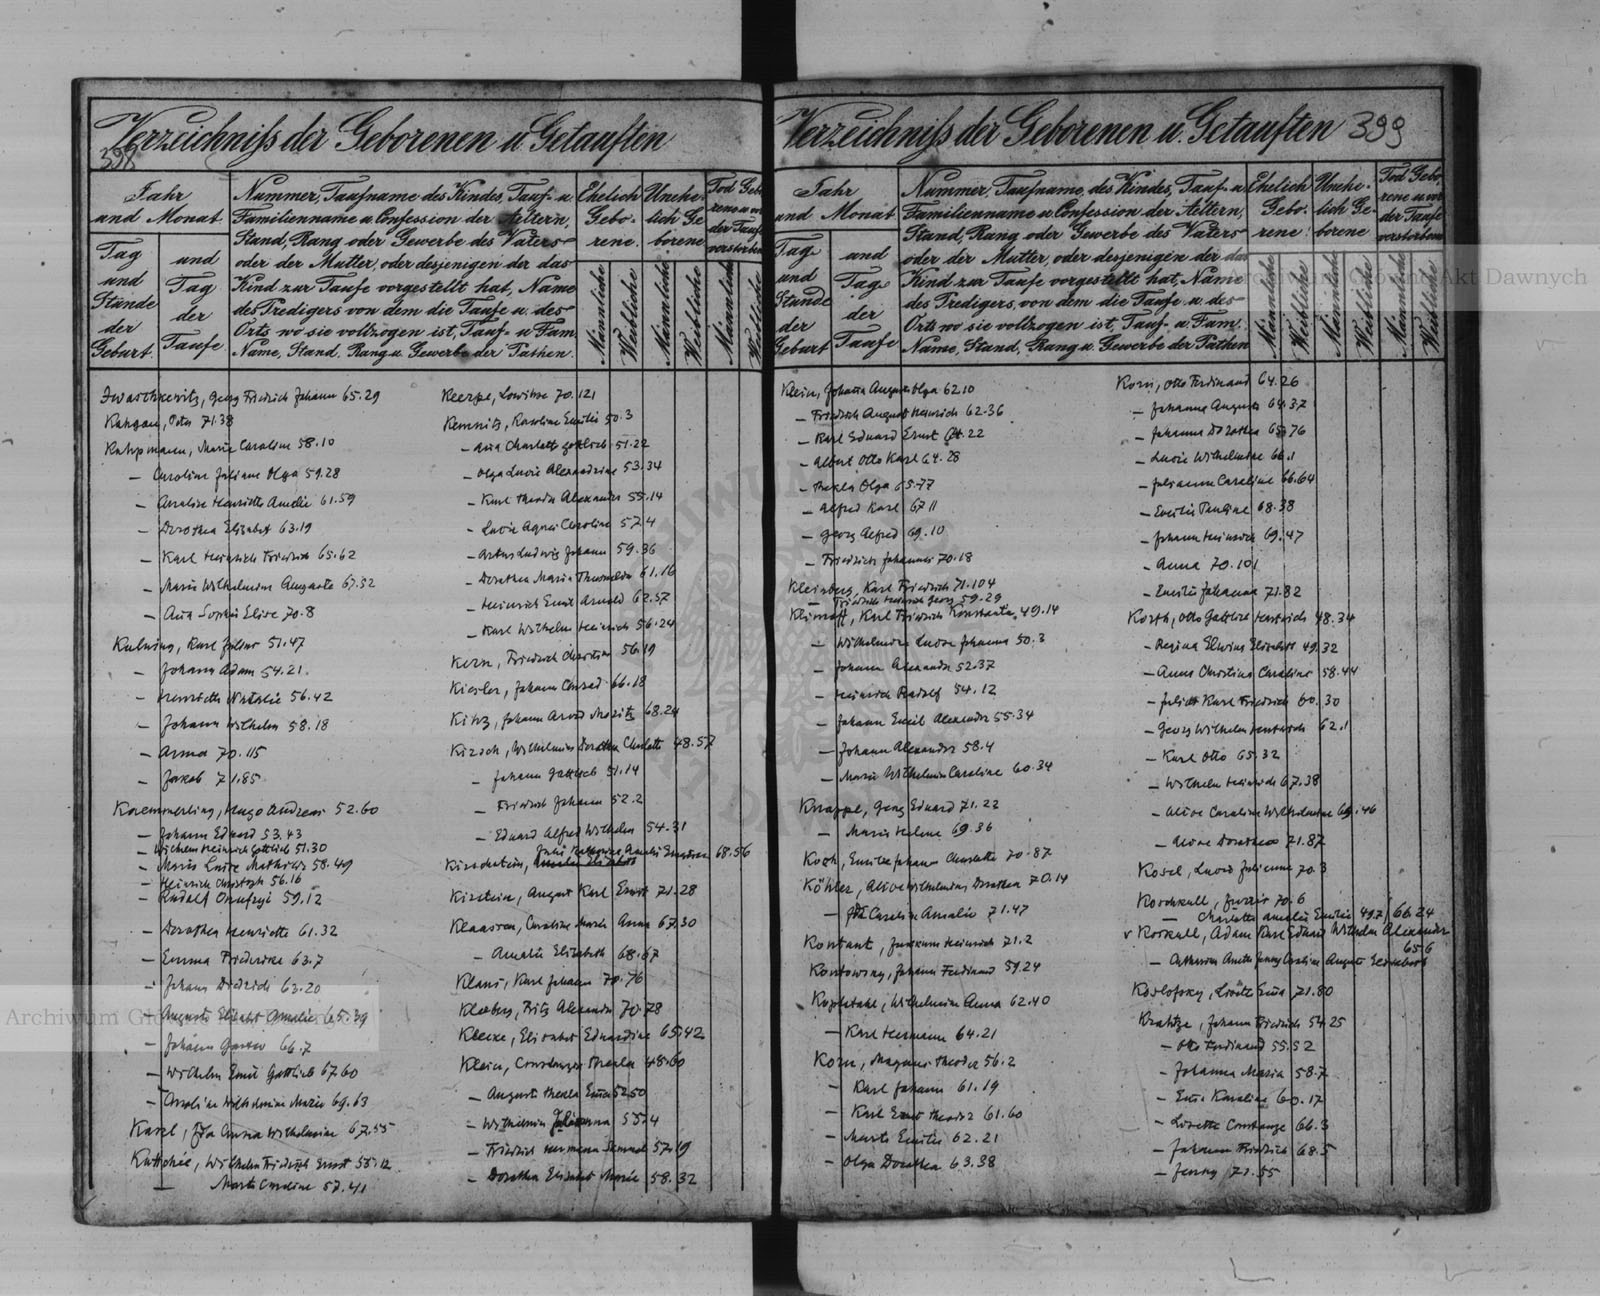 Verzeichniss der Geborenen u. Getauften
398
Jahr
und Monat
Tag
und
Stunde
der
Geburt
und
Tag
der
Taufe
Nummer, Taufname des Kindes, Tauf- u.
Familienname u. Confession der Aeltern,
Stand, Rang oder Gewerbe des Vaters
oder der Mutter, oder desjenigen der das
Kind zur Taufe vorgestellt hat, Name
des Predigers, von dem die Taufe u. des
Orts wo sie vollzogen ist, Tauf- u. Fam.
Name, Stand, Rang u. Gewerbe der Pathen.
Ehelich
Gebo-
rene.
Unehe-
lich Ge-
borene
Tod Gebo
rene u. vor
der Taufe
verstorbene
Männliche
Weibliche
Männliche
Weibliche
Männliche
Weibliche
Iwaschkewitz, Georg Friedrich Johann 65.29
Peter 71.38
Marie Caroline 58.10
— Caroline Juliane Olga 59.28
— Caroline Henriette Amelie 61.59
— Dorothea Elisabet 63.19
— Karl Heinrich Friedrich 65.62
— Marie Wilhelmine Auguste 67.32
— Ana Sophie Elise 70.8
Karl Julius 51.47
— Johann Adam 54.21
— Henriette Natalie 56.42
— Johann Wilhelm 58.18
— Anna 70.115
— Jakob 71.85
Kaemmerling, Hugo Andreas 52.60
— Johann Eduard 53.43
— Wilhelm Heinrich Gottlieb 51.30
— Marie Luise Mathilde 58.49
— Heinrich Christoph 56.16
— Rudolf Onufryi 59.12
— Dorothea Henriette 61.32
— Emma Friederike 63.7
— Johann Diedrich 63.20
— Auguste Elisabet Amalie 65.39
— Johann Gustav 66.7
— Wilhelm Emil Gottlieb 67.60
— Caroline Wilhelmine Marie 69.63
Karel, Ida Anna Wilhelmine 67.55
Wilhelm Friedrich Ernst 55.12
— Marte Caroline 57.41
Lowise 70.121
Kemnitz, Karoline Emilie 50.3
— Ana Charlotte Gottlieb 51.22
— Olga Lucie Alexandrine 53.34
— Karl Theodor Alexander 55.14
— Lucie Agnes Caroline 57.4
— Artur Ludwig Johann 59.36
— Dorothea Maria Thusnelda 61.16
— Heinrich Emil Arnold 62.57
— Karl Wilhelm Heinrich 56.24
Kern, Friedrich Christian 56.19
Kiesler, Johann Conrad 66.18
Kitz, Johann Arvid Moritz 68.24
Kirsch, Wilhelmine Dorothea Charlotte 48.57
— Johann Gottlieb 51.14
— Friedrich Johann 52.2
— Eduard Alfred Wilhelm 54.31
Kirschstein, Julie Katharina Amalie 68.56
Kirstein, August Karl Ernst 71.28
Klaassen, Caroline Marie Anna 67.30
— Amalie Elisabeth 68.67
Klaus, Karl Johann 70.76
Fritz Alexander 70.78
Elisabet Eduardine 65.42
Klein, Constanze Thecla 48.60
— Auguste Thecla Ema 52.50
— Wilhelmine Johanna 55.4
— Friedrich Hermann Samuel 57.19
— Dorothea Elisabet Marie 58.32
Verzeichniss der Geborenen u. Getauften 399
Jahr
und Monat
Tag
und
Stunde
der
Geburt
und
Tag
der
Taufe
Nummer, Taufname, des Kindes, Tauf- u.
Familienname u. Confession der Aeltern,
Stand, Rang oder Gewerbe des Vaters
oder der Mutter, oder desjenigen der das
Kind zur Taufe vorgestellt hat, Name
des Predigers, von dem die Taufe u. des
Orts wo sie vollzogen ist, Tauf- u. Fam.
Name, Stand, Rang u. Gewerbe der Pathen
Ehelich
Gebo-
rene.
Unehe-
lich Ge-
borene
Tod Gebo
rene u. vor
der Taufe
verstorbene
Männliche
Weibliche
Männliche
Weibliche
Männliche
Weibliche
Klein, Johann August Olga 62.10
— Friedrich August Heinrich 62.36
— Karl Eduard Ernst 64.22
— Albert Otto Karl 64.28
— Thekla Olga 65.77
— Alfred Karl 67.11
— Georg Alfred 69.10
— Friedrich Johannes 70.18
Kleinberg, Karl Friedrich 71.104
— Friedrich Heinrich Georg 59.29
Klimoff, Karl Friedrich Konstantin 49.14
— Wilhelmine Luise Johanna 50.3
— Johann Alexander 52.37
— Heinrich Rudolf 54.12
— Johann Emil Alexander 55.34
— Johann Alexander 58.4
— Marie Wilhelmine Caroline 60.34
Knappe, Georg Eduard 71.22
— Marie Helene 69.36
Koch, Emilie Johanna Charlotte 70.87
Köhler, Alice Wilhelmine Dorothea 70.14
— Ida Caroline Amalie 71.47
Kontant, Joachim Heinrich 71.2
Johann Ferdinand 59.24
Kopfstahl, Wilhelmine Anna 62.40
— Karl Hermann 64.21
Korn, Magnus Theodor 56.2
— Karl Johann 61.19
— Karl Ernst Theodor 61.60
— Marte Emilie 62.21
— Olga Dorothea 63.38
Korn, Otto Ferdinand 64.26
— Johanna Auguste 64.37
— Johanna Dorothea 65.76
— Lucie Wilhelmine 66.1
— Julianna Caroline 66.64
— Emilie Pauline 68.38
— Johann Heinrich 69.47
— Anna 70.101
— Emilie Johanna 71.82
Korth, Otto Gottlieb Heinrich 48.34
— Regina Elwine Elisabet 49.32
— Anna Christina Caroline 58.44
— Karl Friedrich 60.30
— Georg Wilhelm Heinrich 62.1
— Karl Otto 65.32
— Wilhelm Heinrich 67.38
— Alice Caroline Wilhelmine 69.46
— Alwine Dorothea 71.87
Kosel, Lucie Julienne 70.3
Koschkull, 70.6
— Charlotte Amalie Emilie 49.7 / 66.24
v Korkull, Adam Karl Eduard Wilhelm Alexander
65.6
— Catharina Anette Jenny Caroline Auguste Elisabeth
Koslofsky, Lisette Ema 71.80
Johann Friedrich 54.25
— Otto Ferdinand 55.52
— Johanna Maria 58.7
— Ema Karoline 60.17
— Lisette Constanze 66.3
— Johann Friedrich 68.5
— Jenny 71.55
Archiwum Główne Akt Dawnych
Archiwum Główne Akt Dawnych